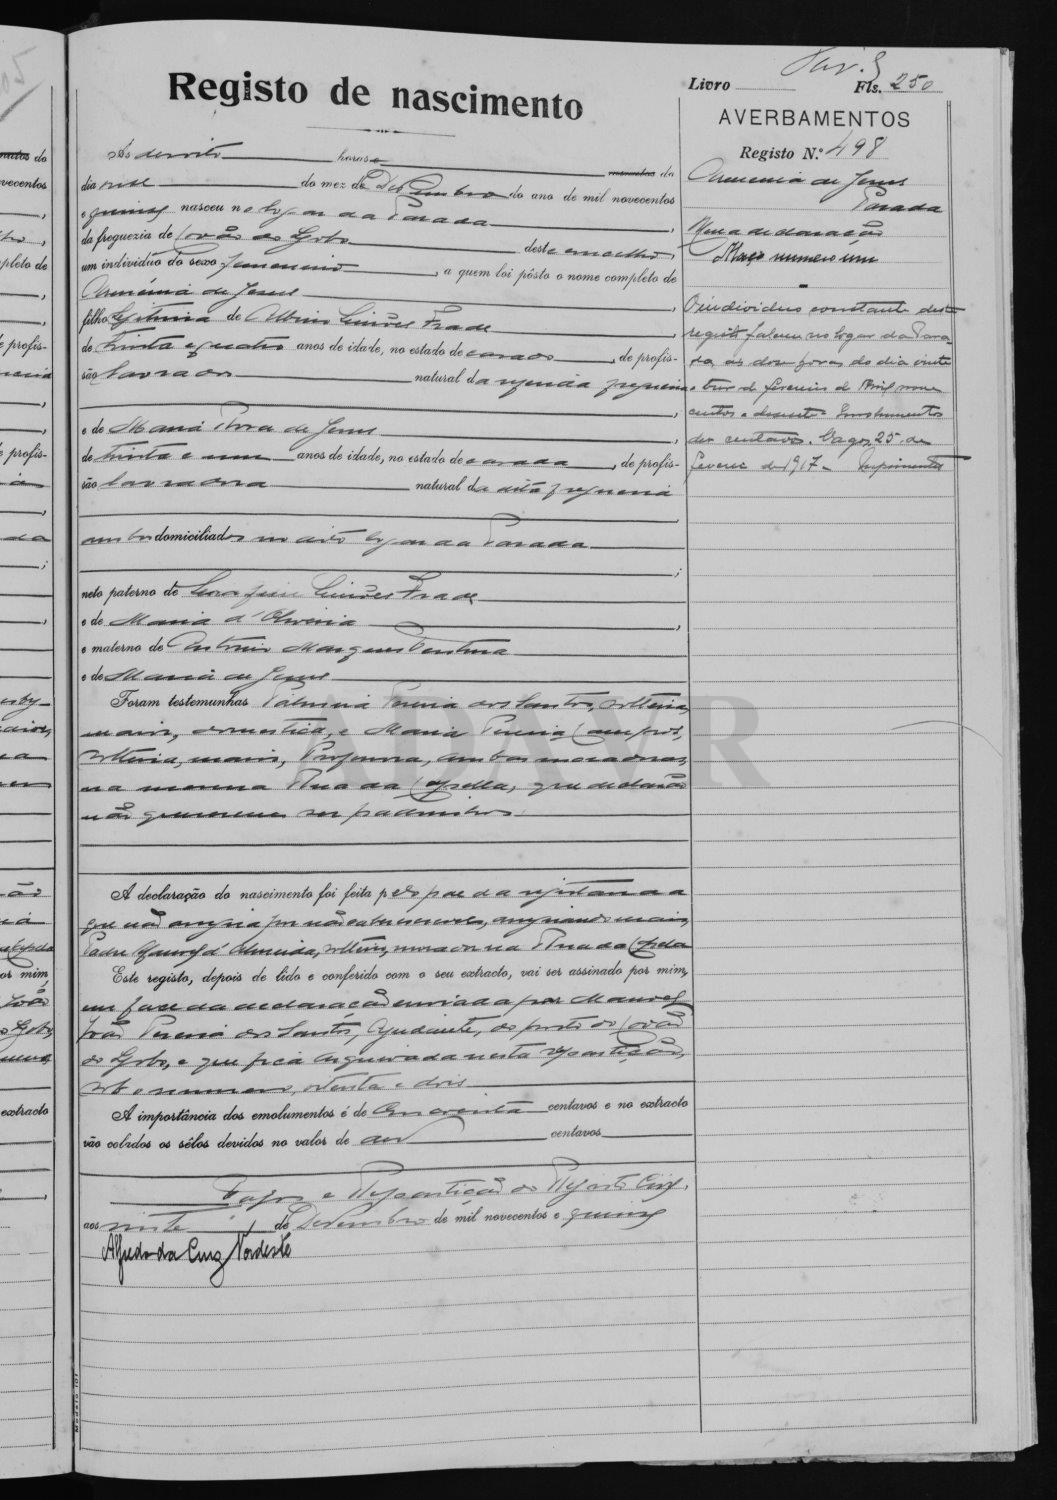 Registo de nascimento
Livro Fls. 250
AVERBAMENTOS
Registo N.º 498
Arménia de Jesus
Parada
Maço numero um
O individuo constante deste
registo faleceu no logar da Para-
da, ás doze horas do dia vinte
e tres de fevereiro de mil nove
centos e desasete. Emolumentos
dez centavos. Vagos, 25 de
fevereiro de 1917
Ás dezoito horas e minutos do
dia onze do mez de Dezembro do ano de mil novecentos
e quinze nasceu no logar da Parada,
da freguezia de Covão do Lobo deste concelho,
um individuo do sexo femenino, a quem foi pôsto o nome completo de
Arménia de Jesus,
filho legitima de Albino Simões Frade
de trinta e quatro anos de idade, no estado de casado, de profis-
são lavrador natural da referida freguezia
e de Maria Rosa de Jesus,
de trinta e um anos de idade, no estado de casada, de profis-
são lavradora natural da dita freguezia
ambos domiciliados no dito logar da Parada;
neto paterno de Serafim Simões Frade
e de Maria d'Oliveira,
e materno de Antonio Marques Ventura
e de Maria de Jesus
Foram testemunhas Palmira Pereira dos Santos, solteira,
maior, domestica, e Maria Pereira Campos,
solteira, maior, Professora, ambas moradoras
na mesma Rua da Capella, que declarão
não quererem ser padrinhos.
A declaração do nascimento foi feita pelo pae da registanda
que não assigna por não saber escrever, assignando
Padre Manoel d'Almeida, solteiro, morador na Rua da Capela
Este registo, depois de lido e conferido com o seu extracto, vai ser assinado por mim,
em face da declaração enviada por Manoel
João Pereira dos Santos, Ajudante, do posto do Covão
do Lobo, e que fica arquivada nesta repartição,
sob o numero, oitenta e dois
A importância dos emolumentos é de cincoenta centavos e no extracto
vão colados os sêlos devidos no valor de dez centavos
Vagos e Repartição do Registo Civil,
aos vinte de Dezembro de mil novecentos e quinze
Alfredo da Cruz Nordeste
Modelo 101
ADAVR